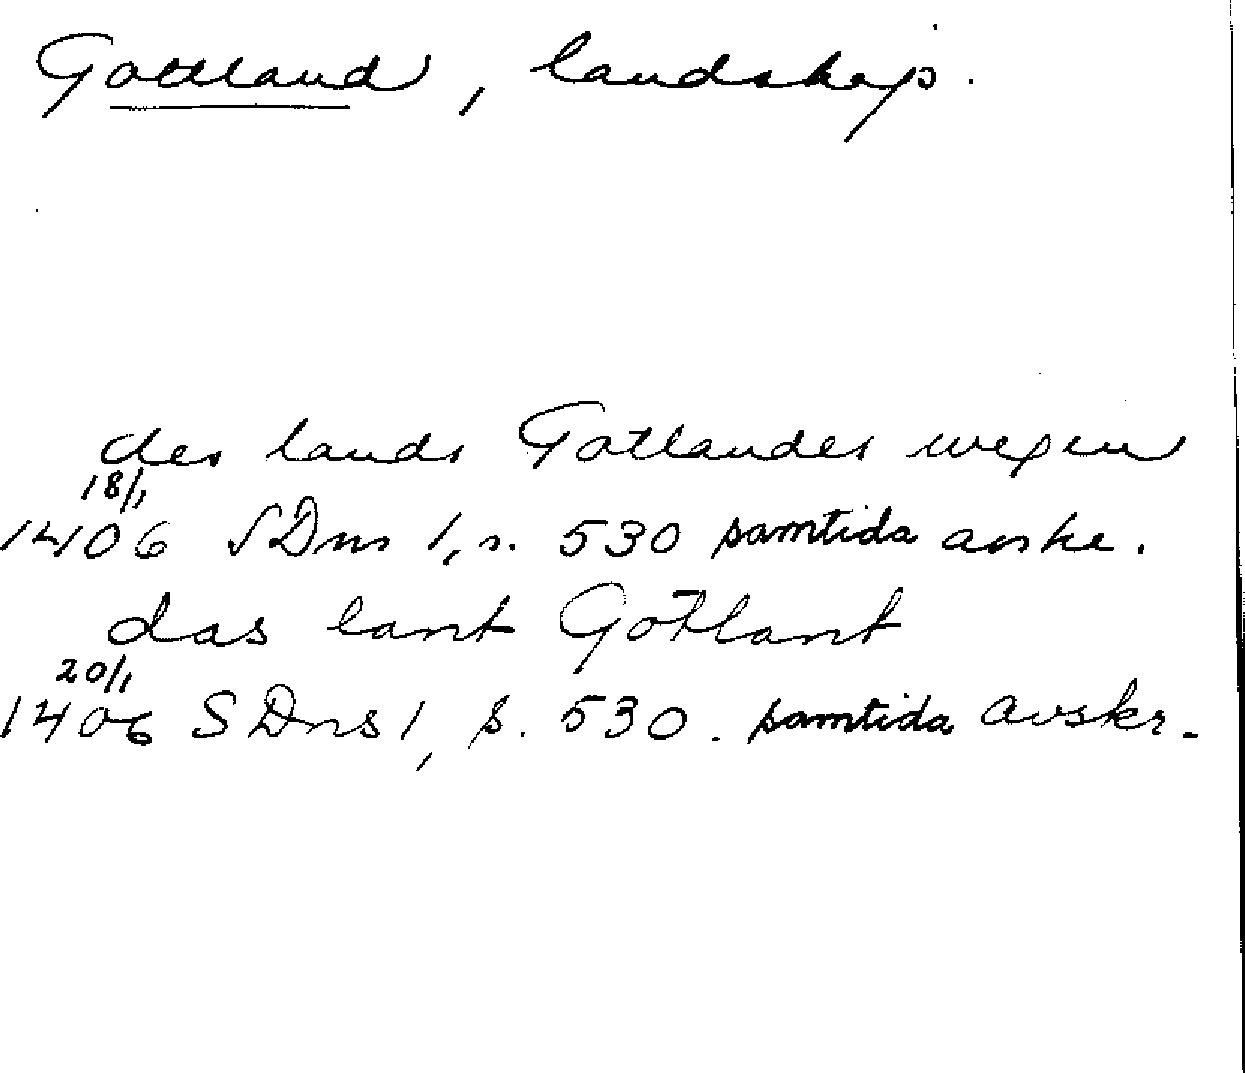 Gottland, landskap.
des lands Gotlandes wegen
18/1
1406 SDns 1, s. 530 samtida avskr.
das lant Gotlant
20/1
1406 SDns 1, s. 530. samtida avskr.